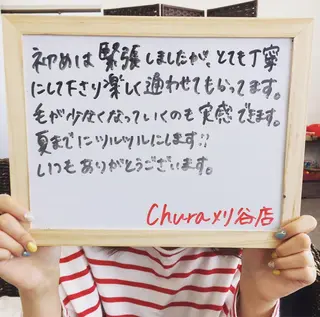 初めは緊張しましたが、とても丁寧
にして下さり楽しく通わせてもらってます。
毛が少なくなっていくのも実感できます。
夏までにツルツルにします!!
いつもありがとうございます。
Churaメリ谷店